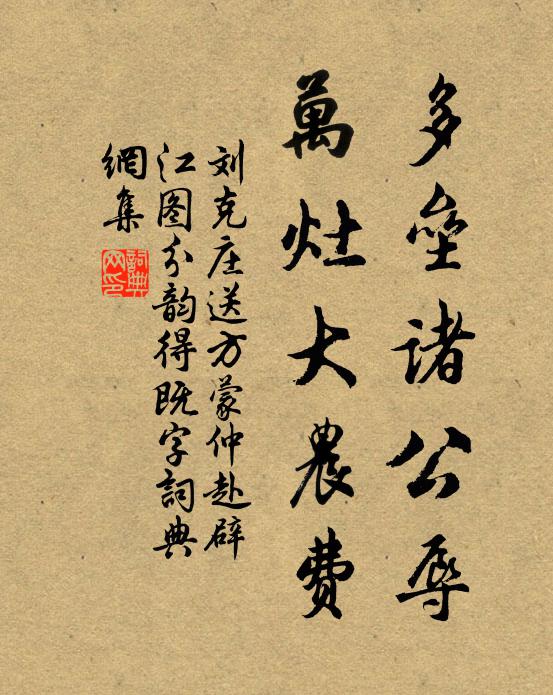 多壘諸公辱
萬灶大農費
刘克庄送方蒙仲赴辟
江图分韵得既字詞典
網集
詞典網印